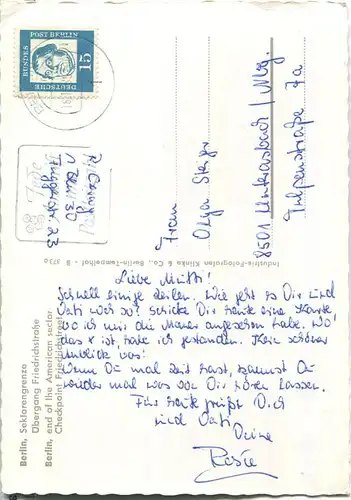 DEUTSCHE
BUNDES
POST BERLIN
15
Frau
Olga
8501 Unterasbach / Nbg.
Tulpenstraße 7a
Berlin, Sektorengrenze
Übergang Friedrichstraße
Berlin, end of the American sector
Checkpoint Friedrichstreet
Industrie-Fotografen Klinke & Co., Berlin-Tempelhof
Liebe Mutti!
Schnell einige Zeilen. Wie geht es Dir und
Vati? schicke Dir heute eine Karte
wo ich mir die Mauer angesehen habe. Wo
das x ist, habe ich gestanden. Kein schöner
Anblick was!
Wenn Du mal Zeit hast, kannst Du
wieder mal was von Dir hören lassen.
Für heute grüßt Dich
und Vati
Deine